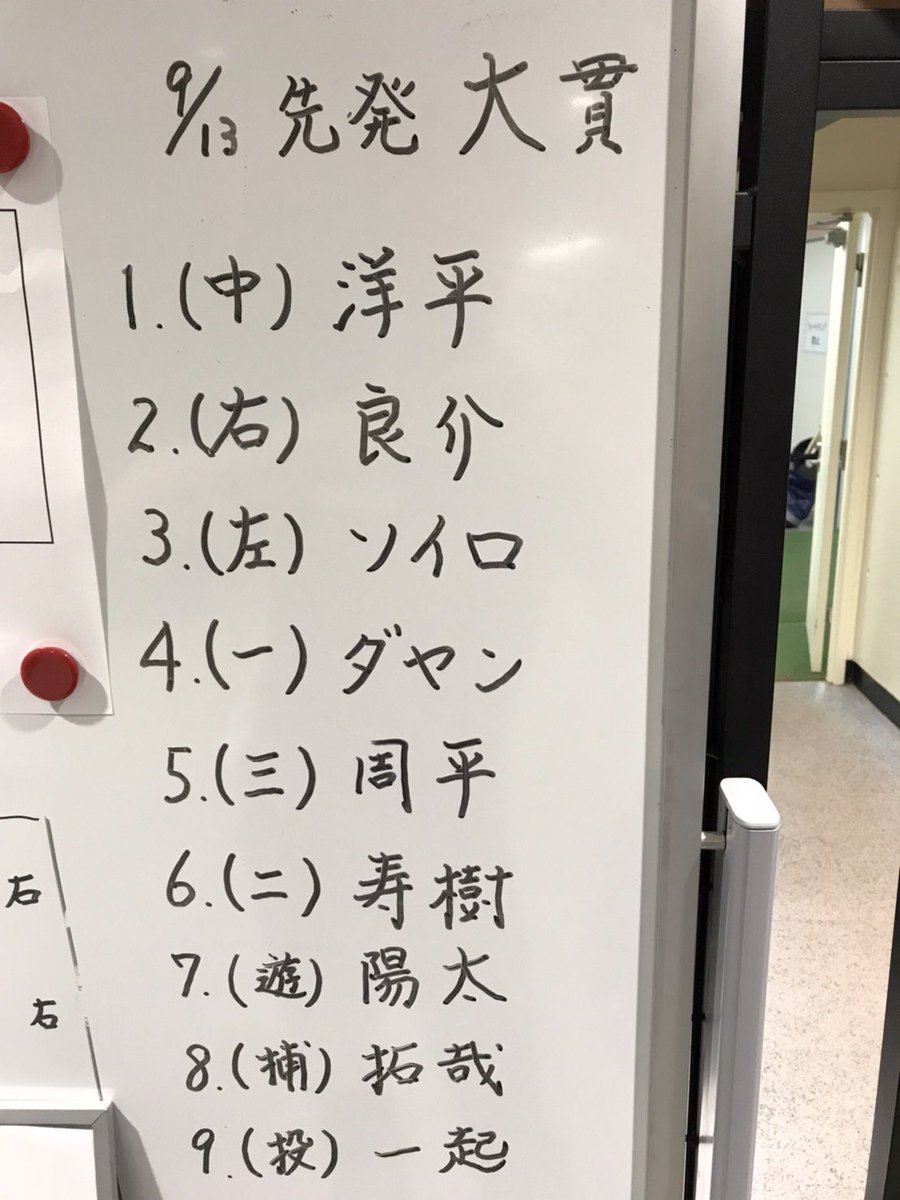 9/13 先発 大貫
1.(中) 洋平
2.(右) 良介
3.(左) ソイロ
4.(一) ダヤン
5.(三) 周平
6.(二) 寿樹
7.(遊) 陽太
8.(捕) 拓哉
9.(投) 一起
右
右